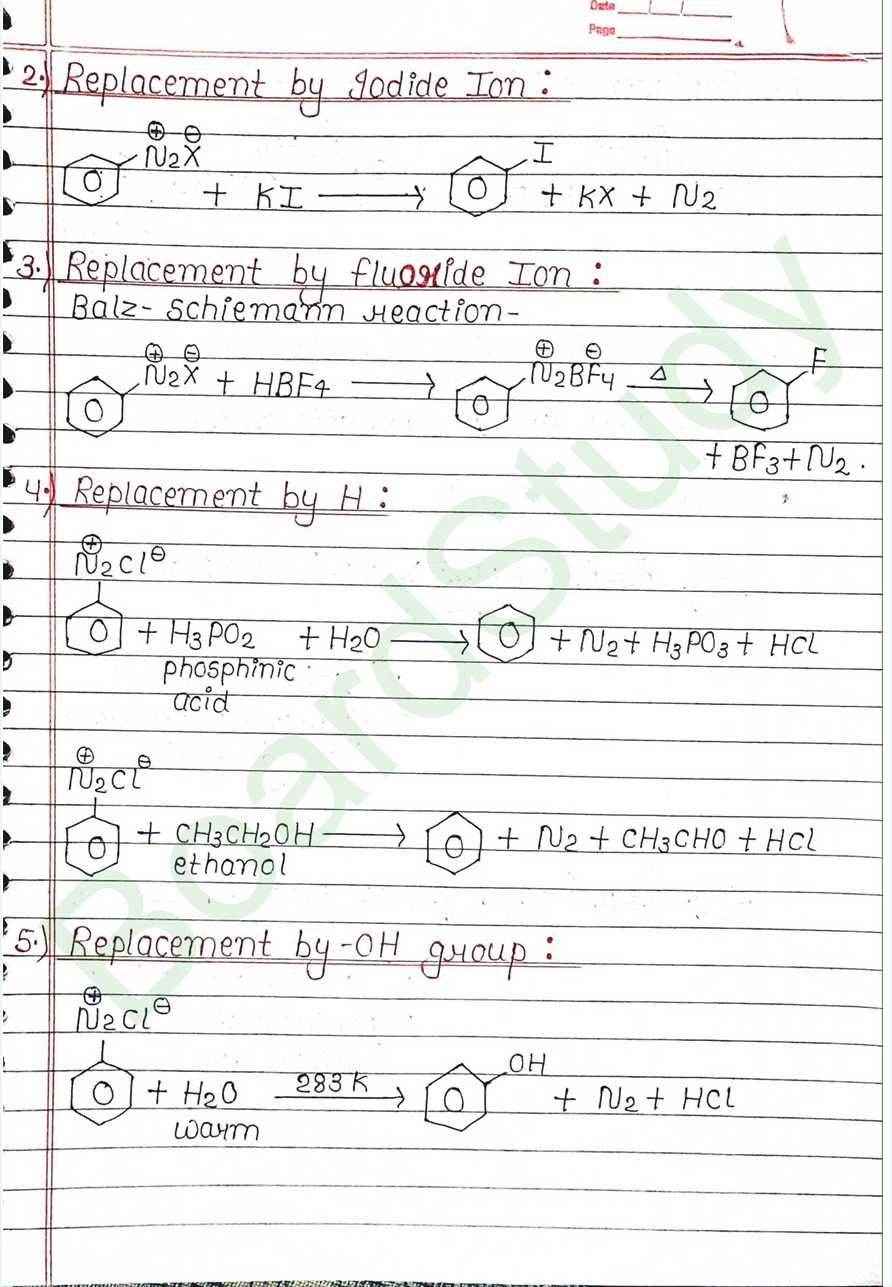 Date
Page
2.) Replacement by Iodide Ion :
⊕ ⊖
N2X
I
+ KI ⟶ + KX + N2
3.) Replacement by fluoride Ion :
Balz-Schiemann reaction-
⊕ ⊖ ⊕ ⊖ F
N2X + HBF4 ⟶ N2BF4 Δ⟶
+ BF3 + N2 .
4.) Replacement by H :
⊕
N2Cl⊖
+ H3PO2 + H2O ⟶ + N2 + H3PO3 + HCl
phosphinic
acid
⊕ ⊖
N2Cl
+ CH3CH2OH ⟶ + N2 + CH3CHO + HCl
ethanol
5.) Replacement by -OH group :
⊕
N2Cl⊖
OH
+ H2O 283 K⟶ + N2 + HCl
warm
BoardStudy